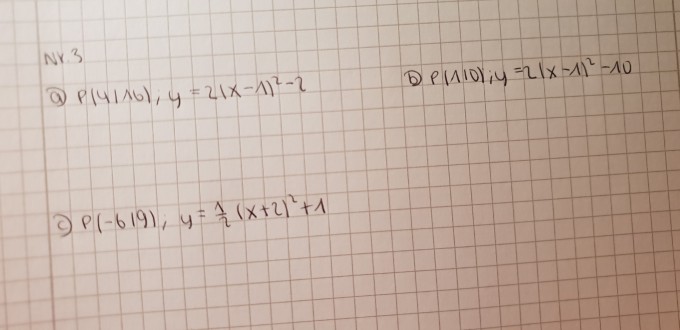 Nr 3
a) P(4|16); y = 2(x-1)²-2
b) P(1|0); y = 2(x-1)²-10
c) P(-6|9); y = 1/2 (x+2)²+1